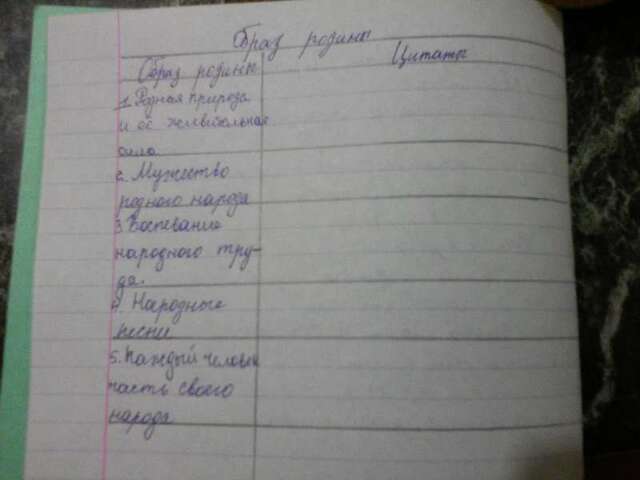 Образ родины
Образ родины
Цитаты
1. Родная природа
и её живительная
сила
2. Мужество
родного народа
3. Воспевание
народного тру-
да.
4. Народные
песни
5. Каждый человек
часть своего
народа